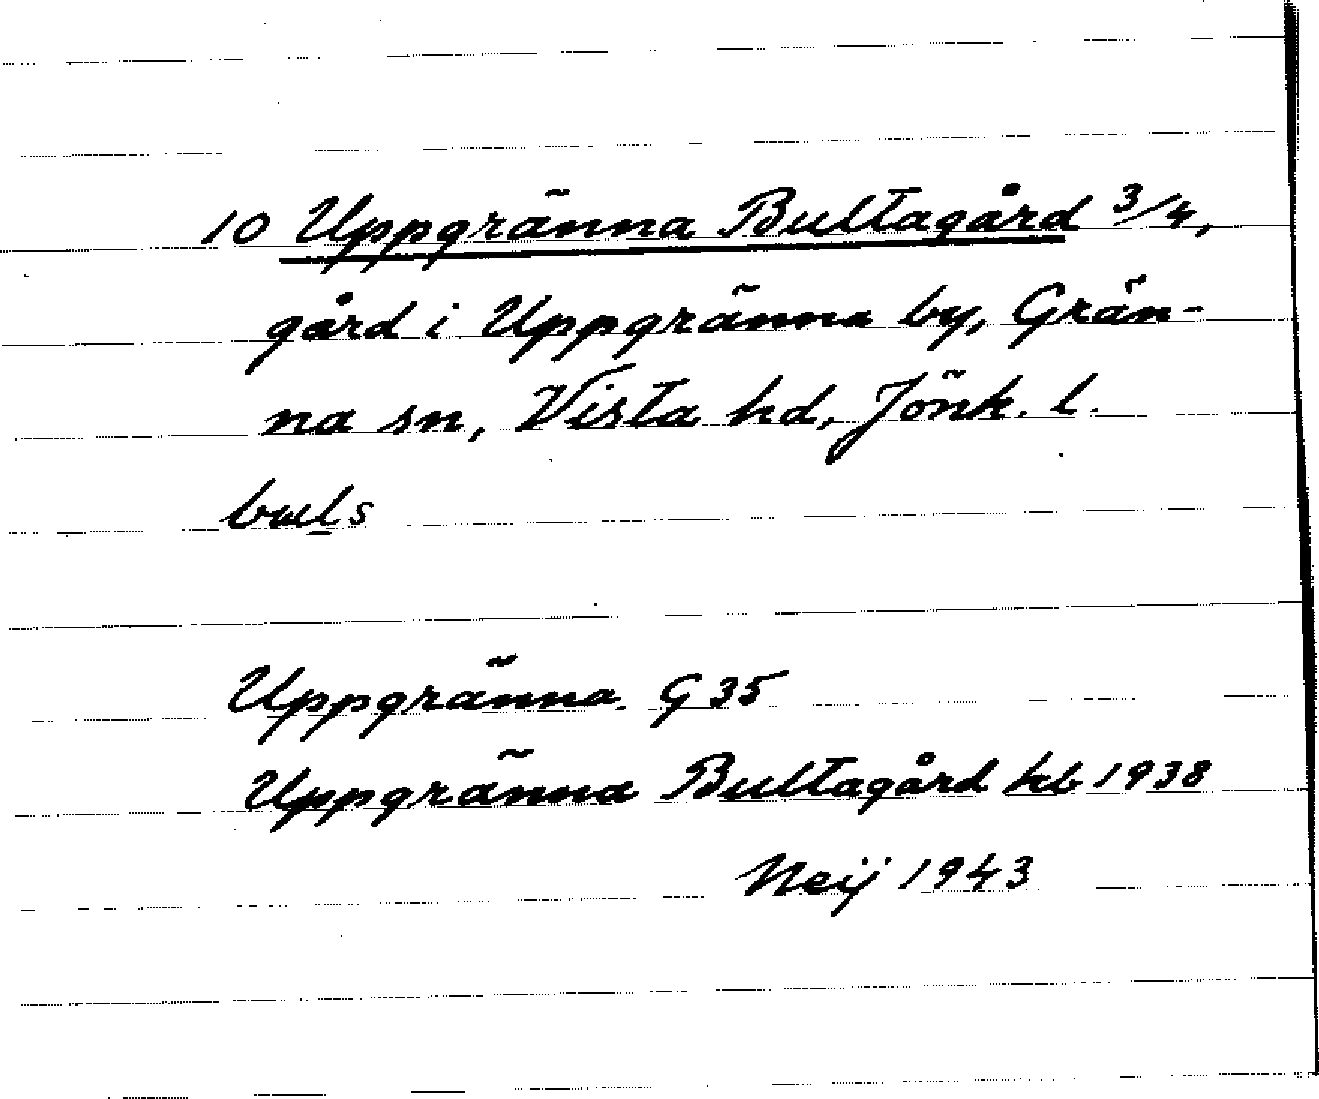 10 Uppgränna Bultagård 3/4,
gård i Uppgränna by, Grän-
na sn, Vista hd, Jönk. l.
Uppgränna. G 35
Uppgränna Bultagård kb 1938
Neij 1943